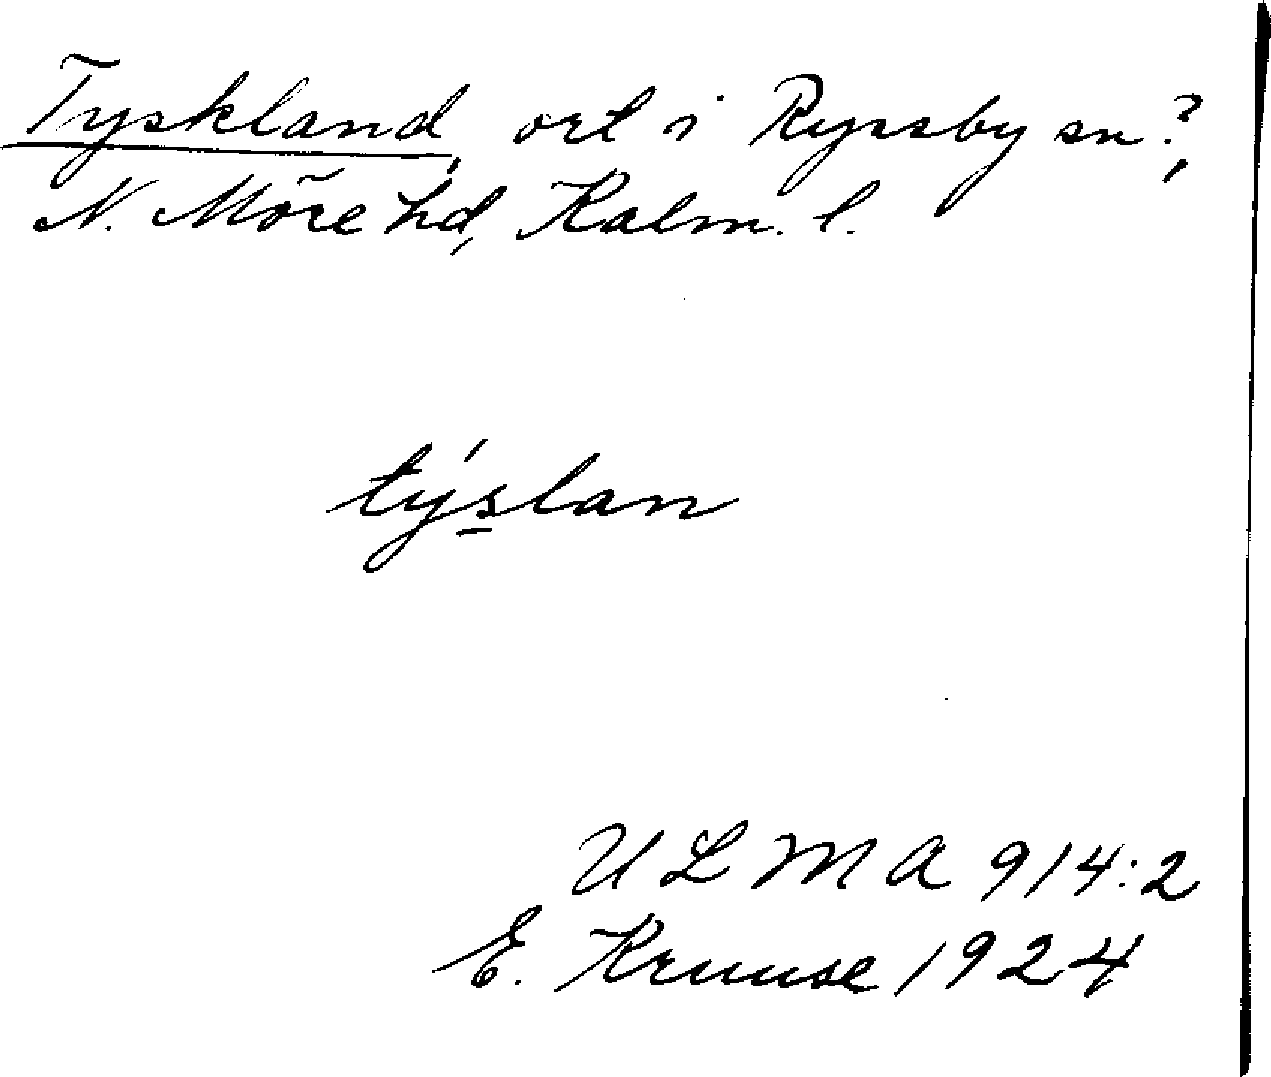 Tyskland, ort i Ryssby sn?,
N. Möre hd, Kalm. l.
týs̲lan
ULMA 914:2
E. Kruuse 1924